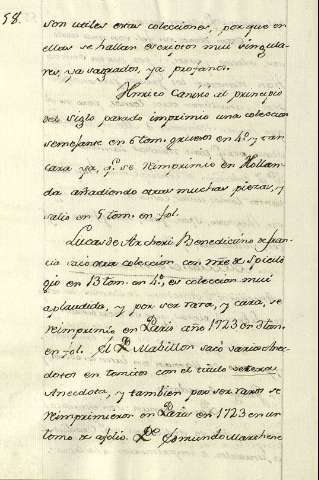 58.
son utiles estas colecciones, porque en
ellas se hallan escriptos mui singula-
res, ya sagrados, ya profanos.
Henrico Canisio al principio
del siglo pasado imprimio una coleccion
semejante en 6 tom. gruesos en 4.º y tan
cara ya, q.e se reimprimio en Hollan-
da añadiendo otras muchas piezas, y
salio en 5 tom. en fol.
Lucas de Acheri Benedictino de fran-
cia saco otra coleccion con nre de Spicile
gio en 13 tom. en 4.º, es coleccion mui
aplaudida, y por ser rara, y cara, se
reimprimio en Paris año 1723 en 3 tom.
en fol. El P. Mabillon sacó varios Anec-
dotos en tomitos con el titulo vetera
Anecdota, y tambien por ser raros se
reimprimieron en Paris en 1723 en un
tomo de afolio. Edmundo Martene